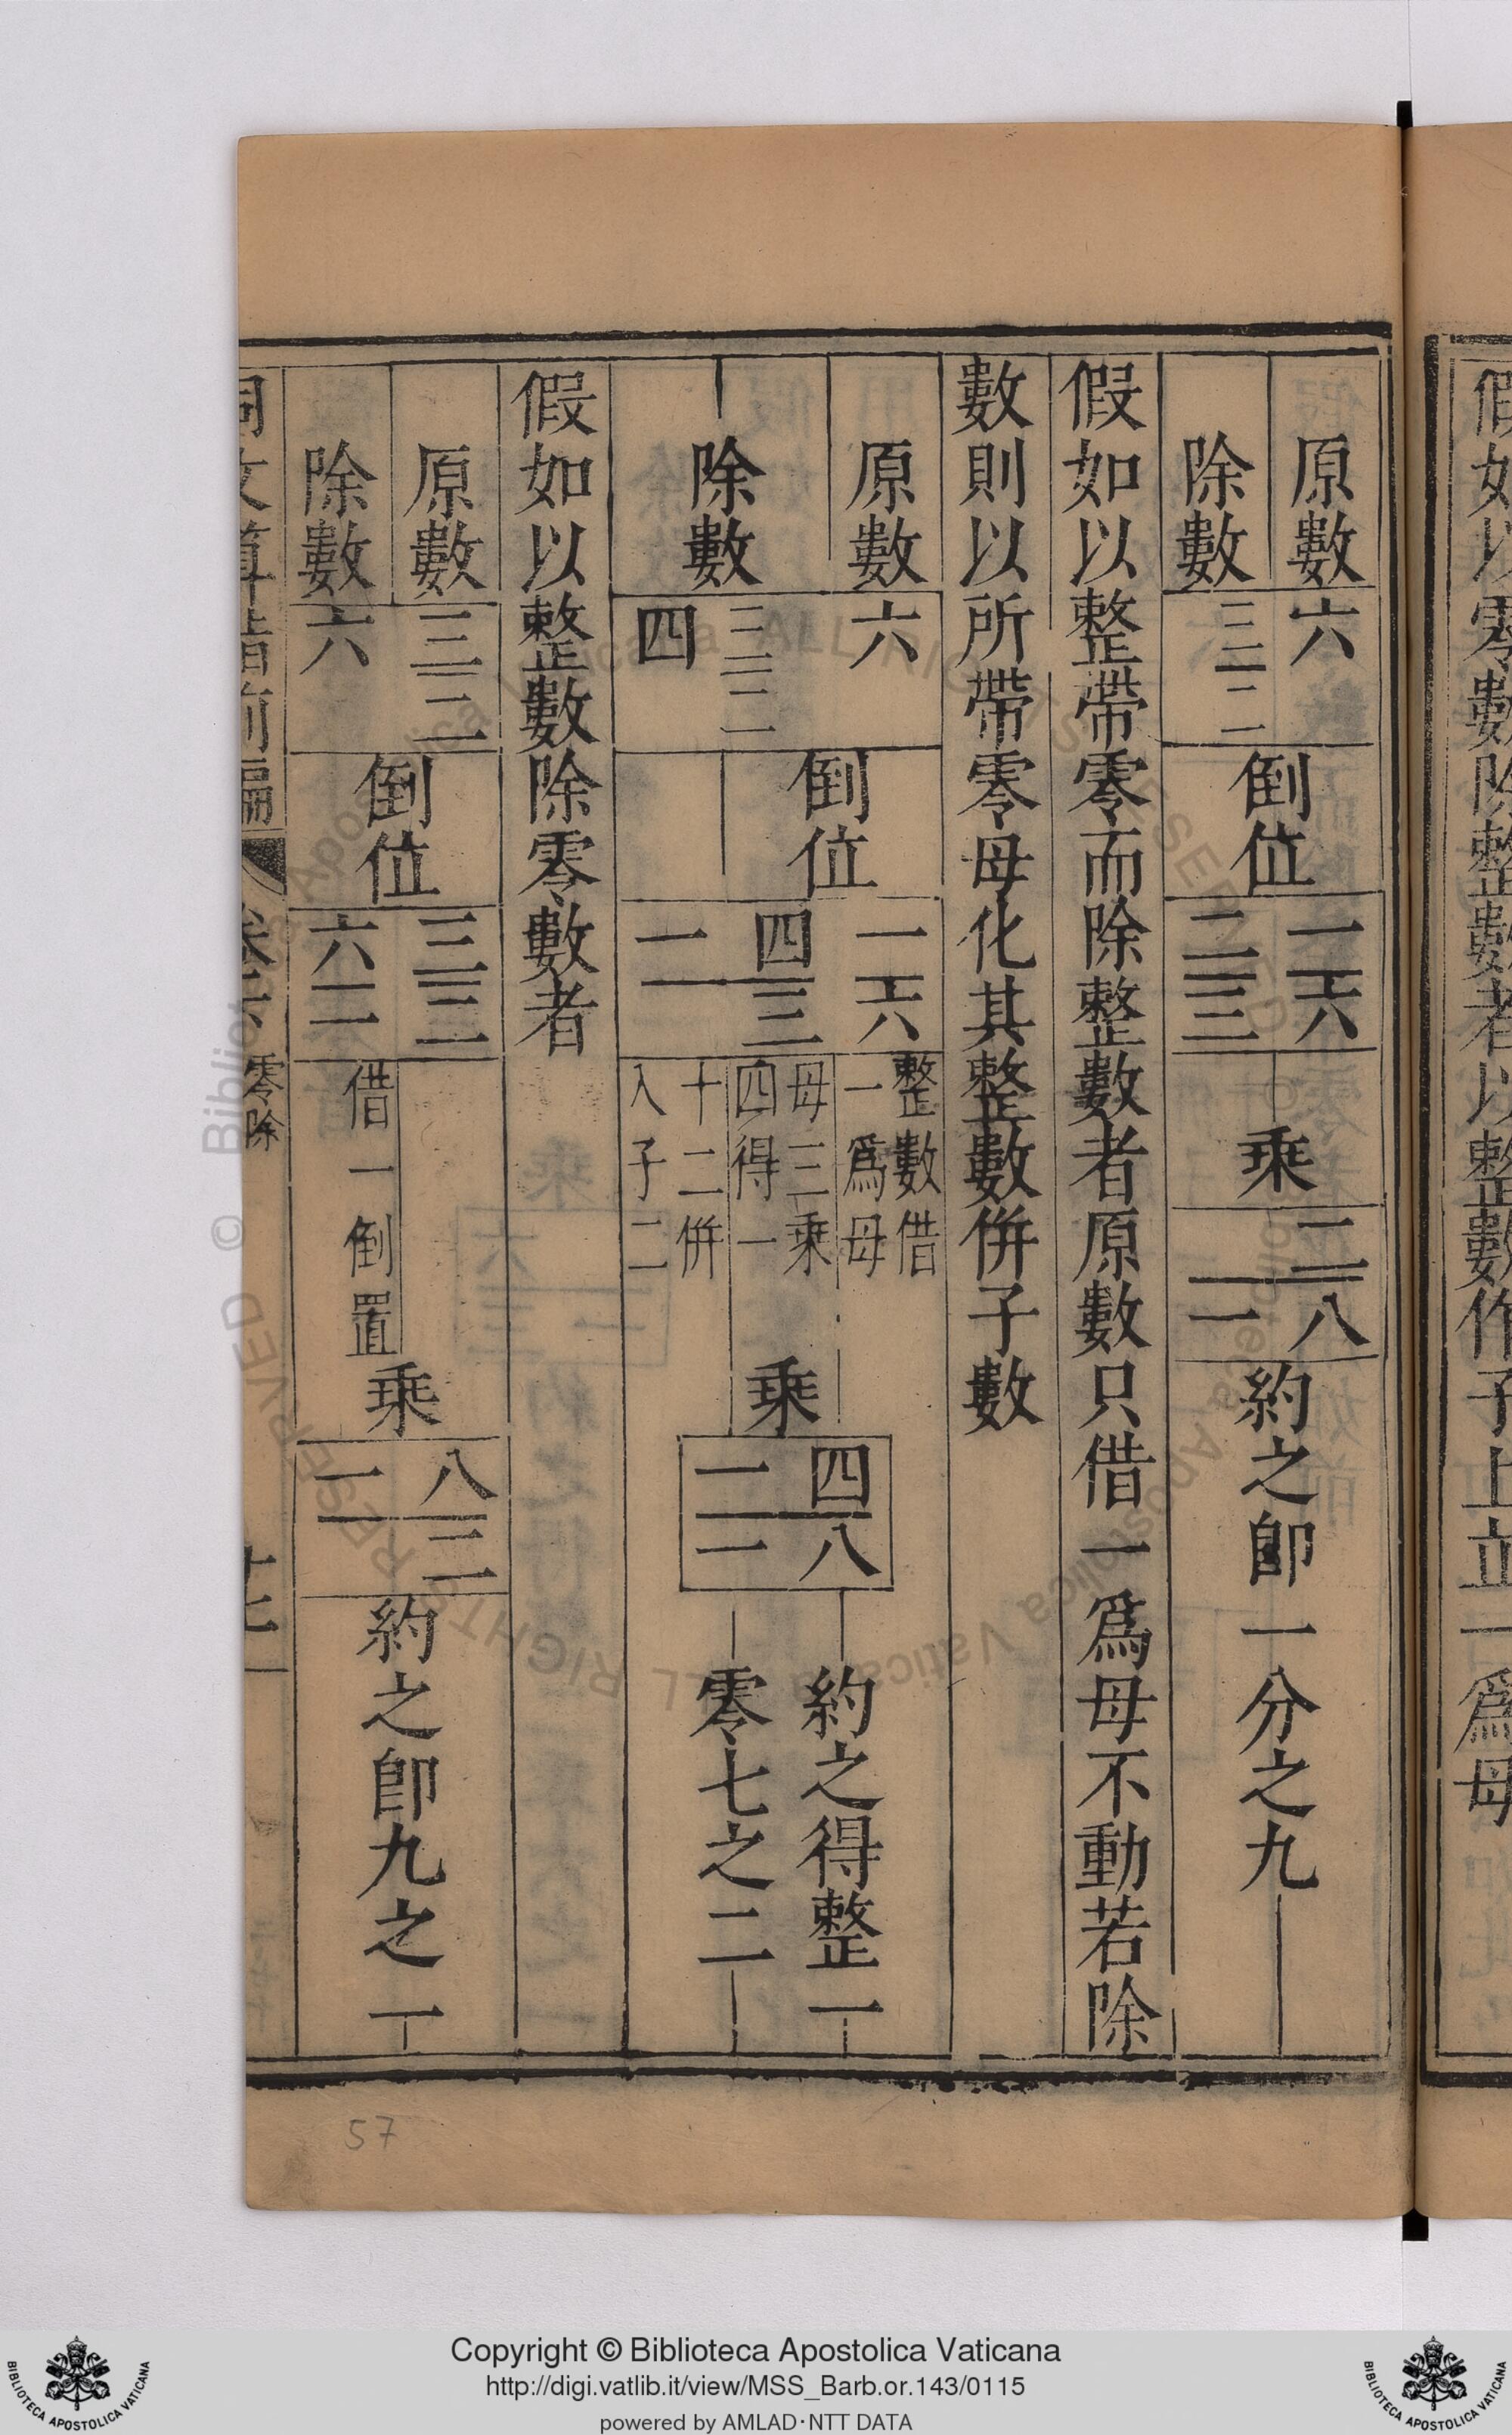 假如以零數除整數者以整數作子上立一爲母
原數 六
除數 三 二
倒位
一 六
二 三
乘
二 八
一
約之卽一分之九
假如以整帶零而除整數者原數只借一爲母不動若除
數則以所帶零母化其整數併子數
原數 六
除數 三 二
四
倒位
一 六
四 三
一
整數借
一爲母
母三乘
四得一
十二併
入子二
乘
四 八
一 一
約之得整一
零七之二
假如以整數除零數者
原數 三 二
除數 六
倒位
三 二
六 一
借一倒置
乘
八 二
一
約之卽九之一
同文算指前編 卷下 零除 十七
57
Copyright © Biblioteca Apostolica Vaticana
http://digi.vatlib.it/view/MSS_Barb.or.143/0115
powered by AMLAD·NTT DATA
BIBLIOTECA APOSTOLICA VATICANA
BIBLIOTECA APOSTOLICA VATICANA